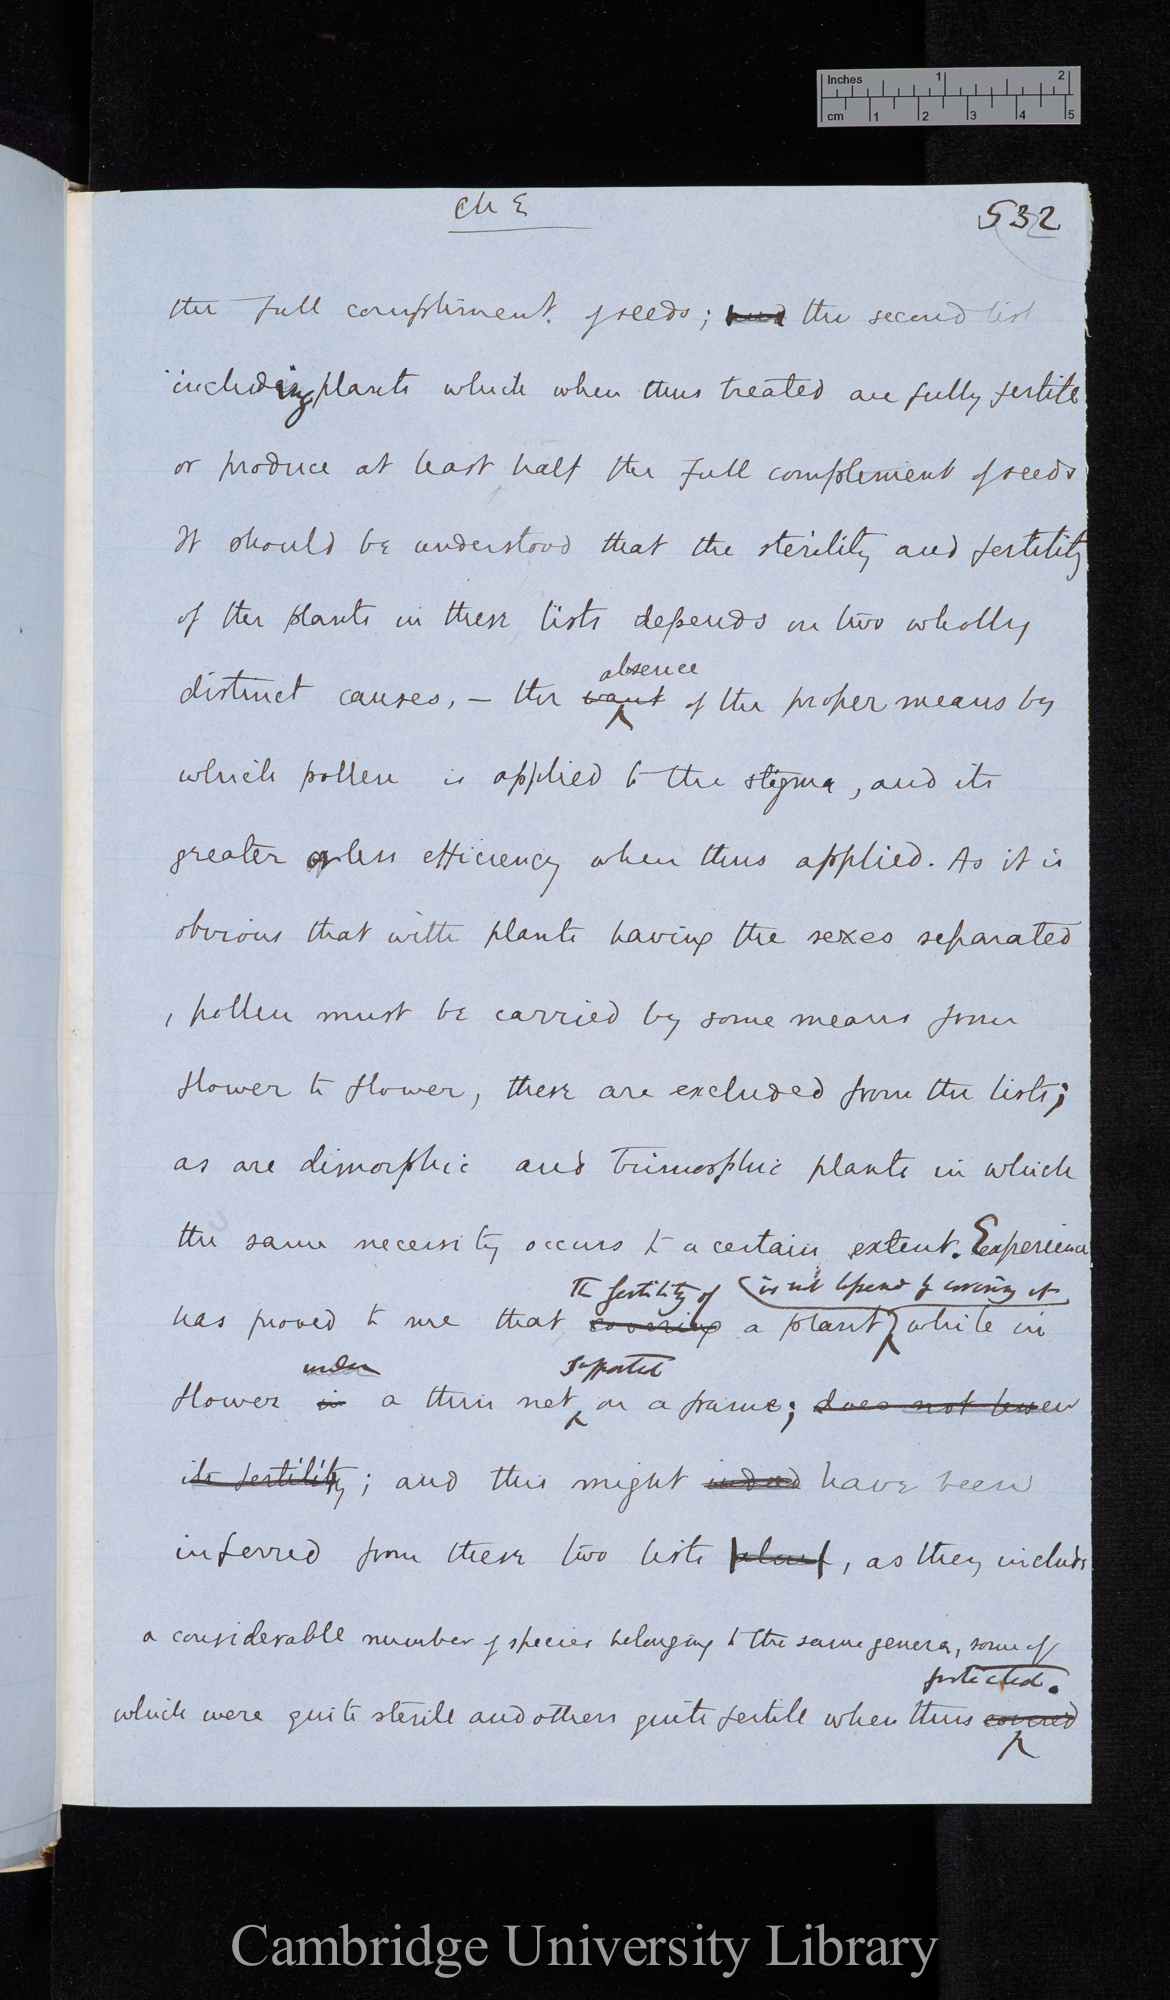 Inches 1 2
cm 1 2 3 4 5
Ch E
532
the full compliment of seeds; and the second list
including plants which when thus treated are fully fertile
or produce at least half the full complement of seeds
It should be understood that the sterility and fertility
of the plants in these lists depends on two wholly
absence
distinct causes, – the want of the proper means by
which pollen is applied to the stigma, and its
greater or less efficiency when thus applied. As it is
obvious that with plants having the sexes separated
, pollen must be carried by some means from
flower to flower, these are excluded from the lists;
as are dimorphic and trimorphic plants in which
the same necessity occurs to a certain extent. Experience
The fertility of is not lessened by covering it
has proved to me that covering a plant while in
under supported
flower in a thin net on a frame; does not lessen
its fertility; and this might indeed have been
inferred from these two lists , as they include
a considerable number of species belonging to the same genera, some of
protected.
which were quite sterile and others quite fertile when thus covered
Cambridge University Library